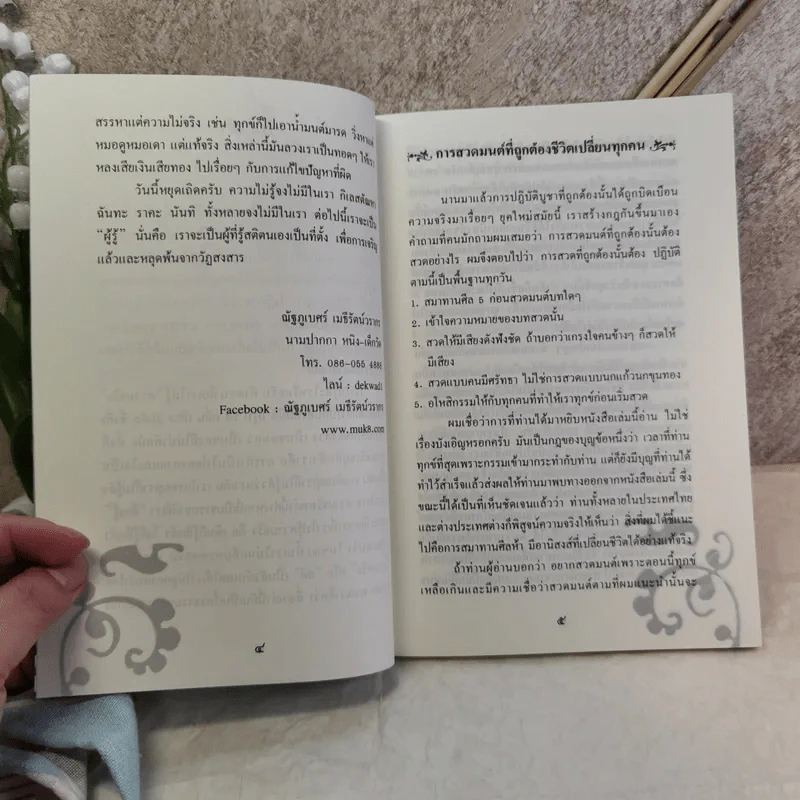 สรรหาแต่ความไม่จริง เช่น ทุกข์ก็ไปเอาน้ำมนต์มารด วิ่งหาแต่
หมอดูหมอเดา แต่แท้จริง สิ่งเหล่านี้มันลวงเราเป็นทอดๆ ให้เรา
หลงเสียเงินเสียทอง ไปเรื่อยๆ กับการแก้ไขปัญหาที่ผิด
วันนี้หยุดเถิดครับ ความไม่รู้จงไม่มีในเรา กิเลสตัณหา
ฉันทะ ราคะ นันทิ ทั้งหลายจงไม่มีในเรา ต่อไปนี้เราจะเป็น
“ผู้รู้” นั่นคือ เราจะเป็นผู้ที่รู้สติตนเองเป็นที่ตั้ง เพื่อการเจริญ
แล้วและหลุดพ้นจากวัฏสงสาร
ณัฐภูเบศร์ เมธีรัตน์วรากร
นามปากกา หนิง-เด็กวัด
โทร. 086-055 4888
ไลน์ : dekwad1
Facebook : ณัฐภูเบศร์ เมธีรัตน์วรากร
www.muk8.com
๔
การสวดมนต์ที่ถูกต้องชีวิตเปลี่ยนทุกคน
นานมาแล้วการปฏิบัติบูชาที่ถูกต้องนั้นได้ถูกบิดเบือน
ความจริงมาเรื่อยๆ ยุคใหม่สมัยนี้ เราสร้างกฎกันขึ้นมาเอง
คำถามที่คนมักถามผมเสมอว่า การสวดมนต์ที่ถูกต้องนั้นต้อง
สวดอย่างไร ผมจึงตอบไปว่า การสวดที่ถูกต้องนั้นต้อง ปฏิบัติ
ตามนี้เป็นพื้นฐานทุกวัน
1. สมาทานศีล 5 ก่อนสวดมนต์บทใดๆ
2. เข้าใจความหมายของบทสวดนั้น
3. สวดให้มีเสียงดังฟังชัด ถ้าบอกว่าเกรงใจคนข้างๆ ก็สวดให้
มีเสียง
4. สวดแบบคนมีศรัทธา ไม่ใช่การสวดแบบนกแก้วนกขุนทอง
5. อโหสิกรรมให้กับทุกคนที่ทำให้เราทุกข์ก่อนเริ่มสวด
ผมเชื่อว่าการที่ท่านได้มาหยิบหนังสือเล่มนี้อ่าน ไม่ใช่
เรื่องบังเอิญหรอกครับ มันเป็นกฎของบุญข้อหนึ่งว่า เวลาที่ท่าน
ทุกข์ที่สุดเพราะกรรมเข้ามากระทำกับท่าน แต่ก็ยังมีบุญที่ท่านได้
ทำไว้สำเร็จแล้วส่งผลให้ท่านมาพบทางออกจากหนังสือเล่มนี้ ซึ่ง
ขณะนี้ได้เป็นที่เห็นชัดเจนแล้วว่า ท่านทั้งหลายในประเทศไทย
และต่างประเทศต่างก็พิสูจน์ความจริงให้เห็นว่า สิ่งที่ผมได้ชี้แนะ
ไปคือการสมาทานศีลห้า มีอานิสงส์ที่เปลี่ยนชีวิตได้อย่างแท้จริง
ถ้าท่านผู้อ่านบอกว่า อยากสวดมนต์เพราะตอนนี้ทุกข์
เหลือเกินและมีความเชื่อว่าสวดมนต์ตามที่ผมแนะนำนั้นจะ
๕